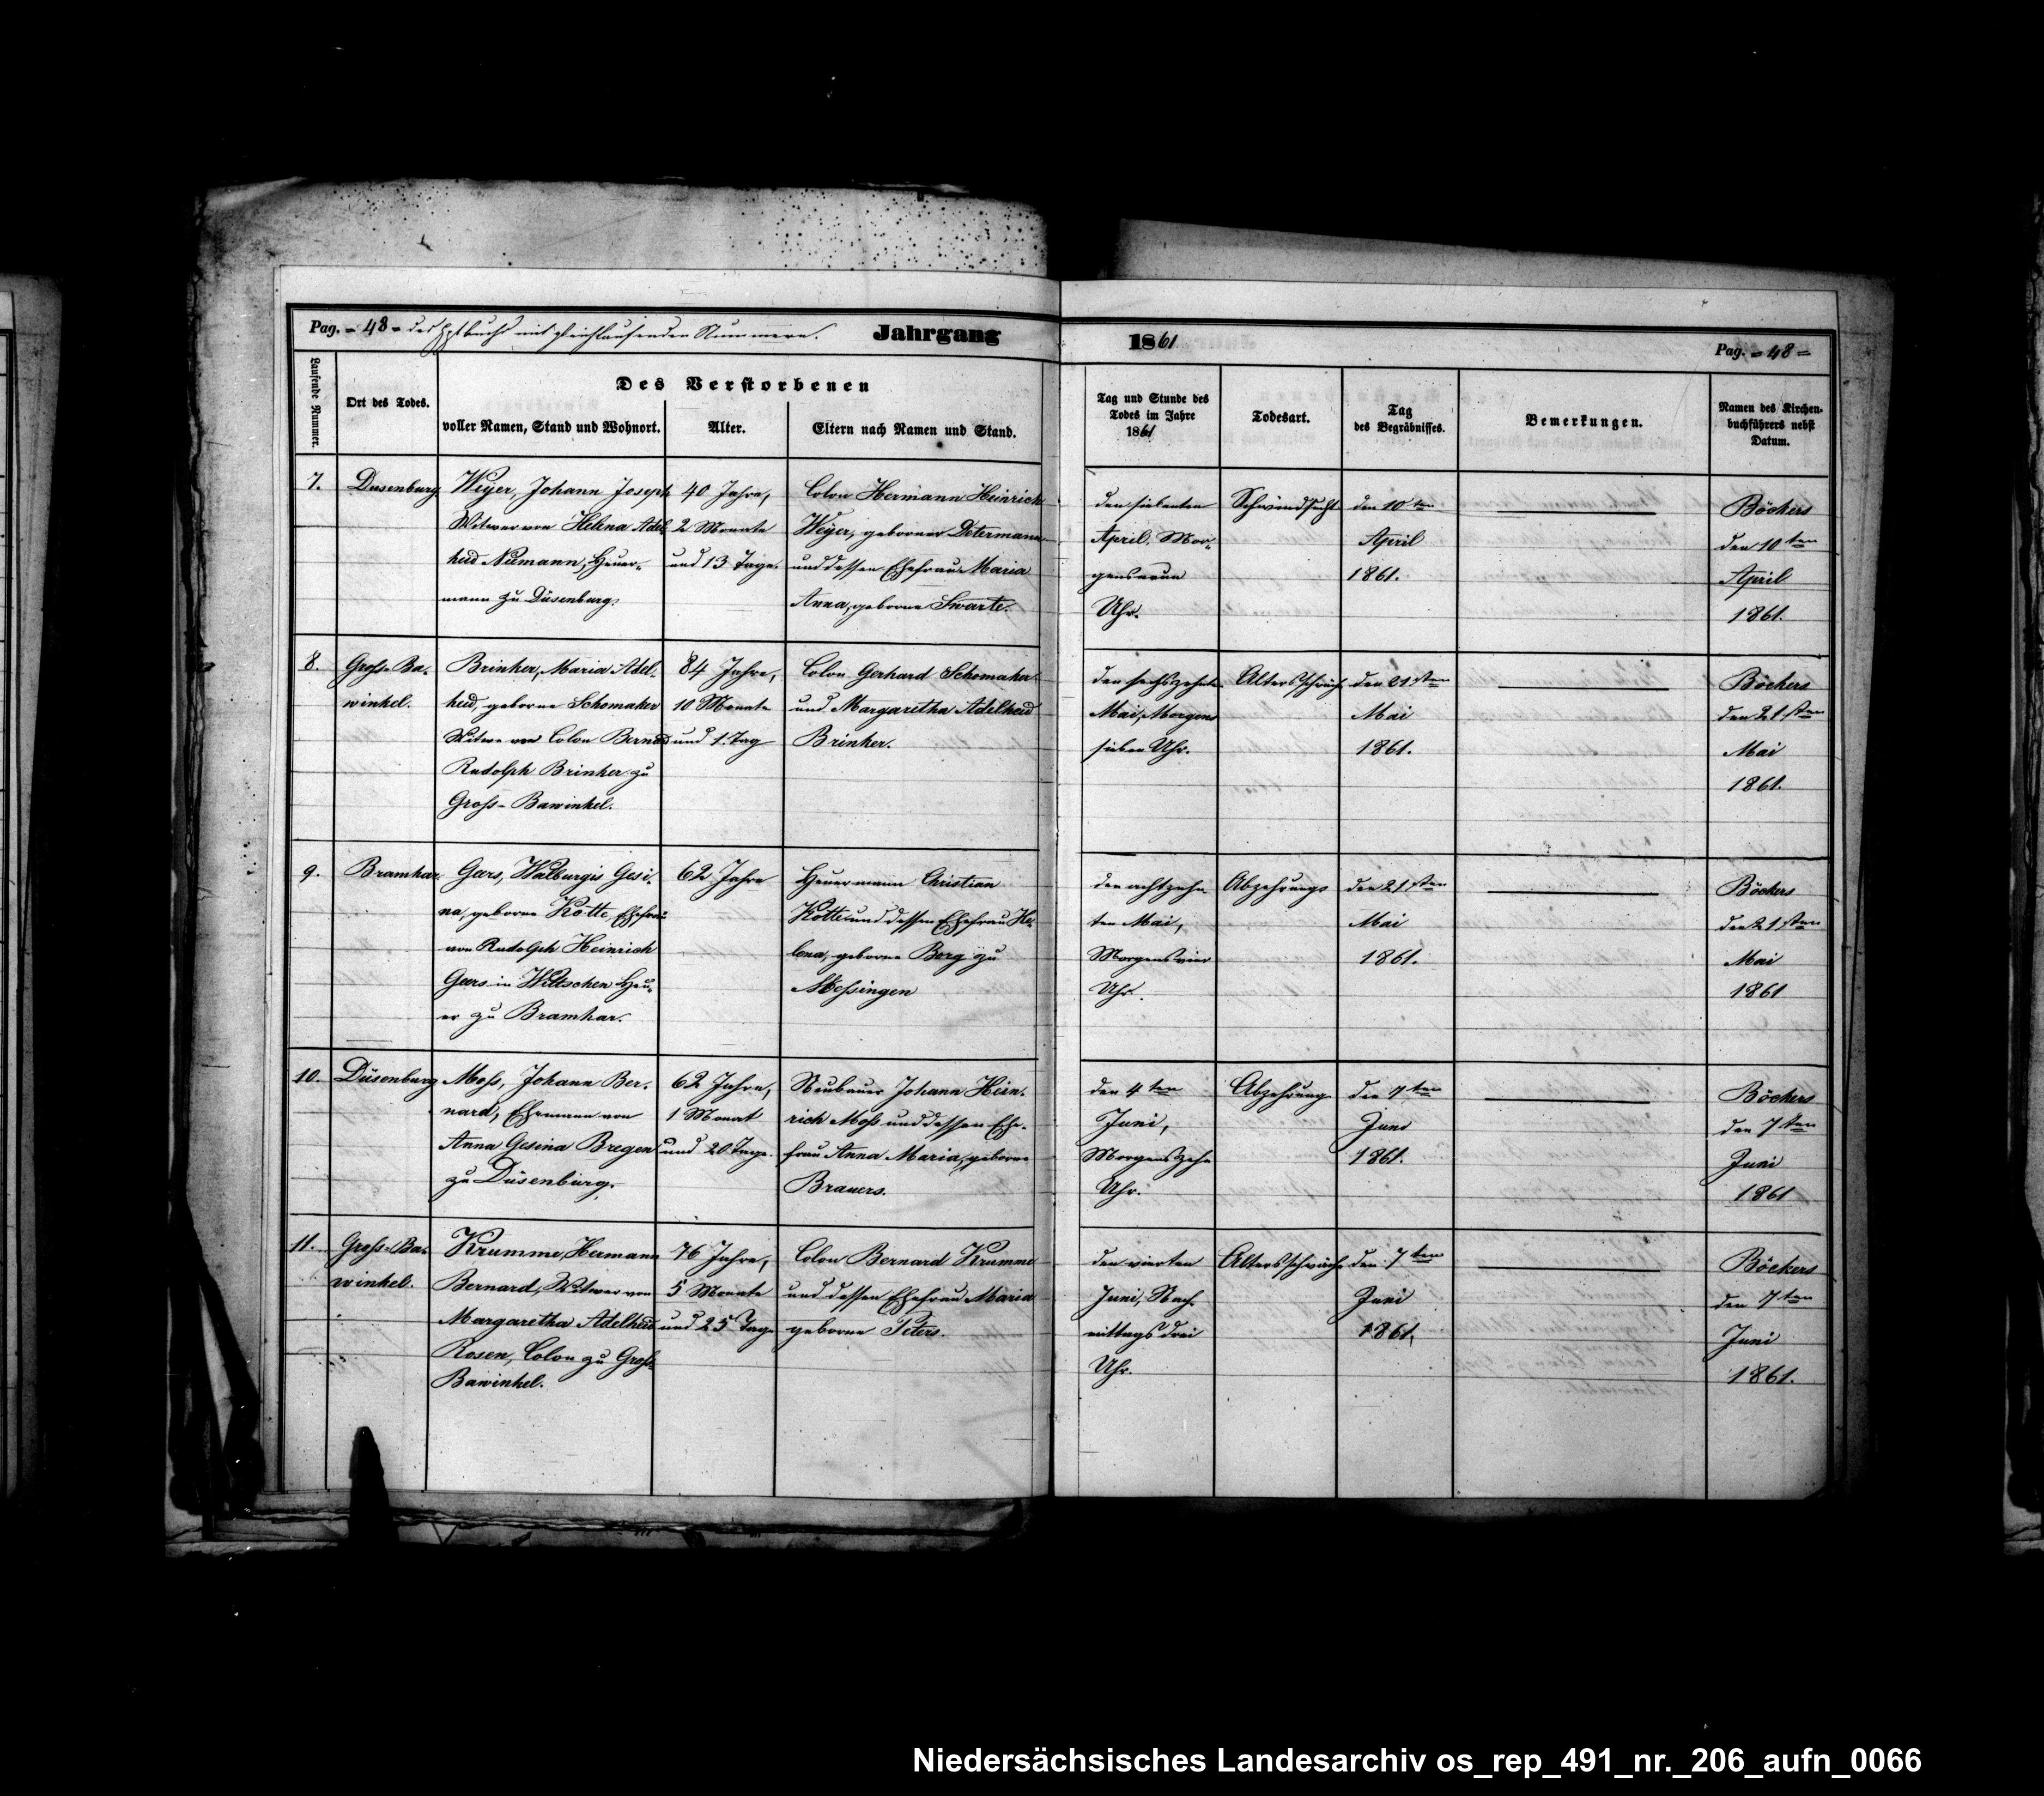 Pag. - 48 - des Hptbuchs mit gleichlaufenden Nummern. Jahrgang 1861 Pag. - 48 -
Laufende Nummer.
Ort des Todes.
Des Verstorbenen
voller Namen, Stand und Wohnort.
Alter.
Eltern nach Namen und Stand.
Tag und Stunde des
Todes im Jahre
1861
Todesart.
Tag
des Begräbnisses.
Bemerkungen.
Namen des Kirchen-
buchführers nebst
Datum.
7.
Dusenburg
Weyer, Johann Joseph
Witwer von Helena Adel-
heid Niemann, Heuer-
mann zu Düsenburg.
40 Jahre,
2 Monate
und 13 Tage.
Colon Hermann Heinrich
Weyer, geborner Determann
und dessen Ehefrau Maria
Anna, geborne Swarte.
den siebenten
April, Mor-
gens neun
Uhr.
Schwindsucht
den 10ten
April
1861.
Böckers
den 10ten
April
1861.
8.
Groß-Ba-
winkel.
Brinker, Maria Adel-
heid, geborne Schomaker
Witwe von Colon Bernard
Rudolph Brinker zu
Groß-Bawinkel.
84 Jahre,
10 Monate
und 1. Tag
Colon Gerhard Schomaker
und Margaretha Adelheid
Brinker.
den sechszehnten
Mai, Morgens
sieben Uhr.
Altersschwäche
den 21sten
Mai
1861.
Böckers
den 21sten
Mai
1861.
9.
Bramhar.
Geers, Walburgis Gesi-
na, geborne Kotte, Ehefrau
von Rudolph Heinrich
Geers in Wiltschen Heu-
er zu Bramhar.
62 Jahre
Heuermann Christian
Kotte und dessen Ehefrau He-
lena, geborne Berg zu
Messingen
den achtzehn-
ten Mai,
Morgens vier
Uhr.
Abzehrungs
den 21sten
Mai
1861.
Böckers
den 21sten
Mai
1861
10.
Düsenburg
Moß, Johann Ber-
nard, Ehemann von
Anna Gesina Bregen
zu Düsenburg.
62 Jahre,
1 Monat
und 20 Tage.
Neubauer Johann Hein-
rich Moß und dessen Ehe-
frau Anna Maria, geborne
Brauers.
den 4ten
Juni,
Morgens zehn
Uhr.
Abzehrung
den 7ten
Juni
1861.
Böckers
den 7ten
Juni
1861
11.
Groß-Ba-
winkel.
Krumme, Hermann
Bernard, Witwer von
Margaretha Adelheid
Rosen, Colon zu Groß-
Bawinkel.
76 Jahre,
5 Monate
und 25 Tage
Colon Bernard Krumme
und dessen Ehefrau Maria
geborne Peters.
den vierten
Juni, Nach-
mittags drei
Uhr.
Altersschwäche
den 7ten
Juni
1861.
Böckers
den 7ten
Juni
1861.
Niedersächsisches Landesarchiv os_rep_491_nr._206_aufn_0066